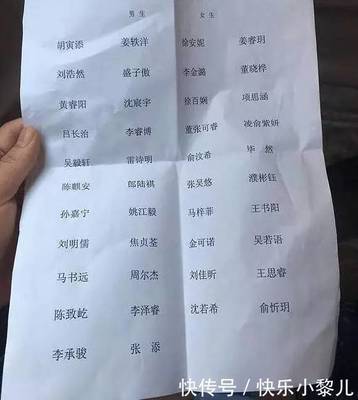 男生 女生
胡寅添 姜轶洋 徐安妮 姜睿玥
刘浩然 盛子傲 李金潞 董晓桦
黄睿阳 沈宸宇 徐百娴 项思涵
吕长治 李睿博 董张可睿 凌俞紫妍
吴毅轩 雷诗明 俞汶希 毕然
陈麒安 郎陆祺 张吴悠 濮彬钰
孙嘉宁 姚江毅 马梓菲 王书阳
刘明儒 焦贞荃 金可诺 吴若语
马书远 周尔杰 刘佳昕 王思睿
陈致屹 李泽睿 沈若希 俞忻玥
李承骏 张添
快传号／快乐小黎儿